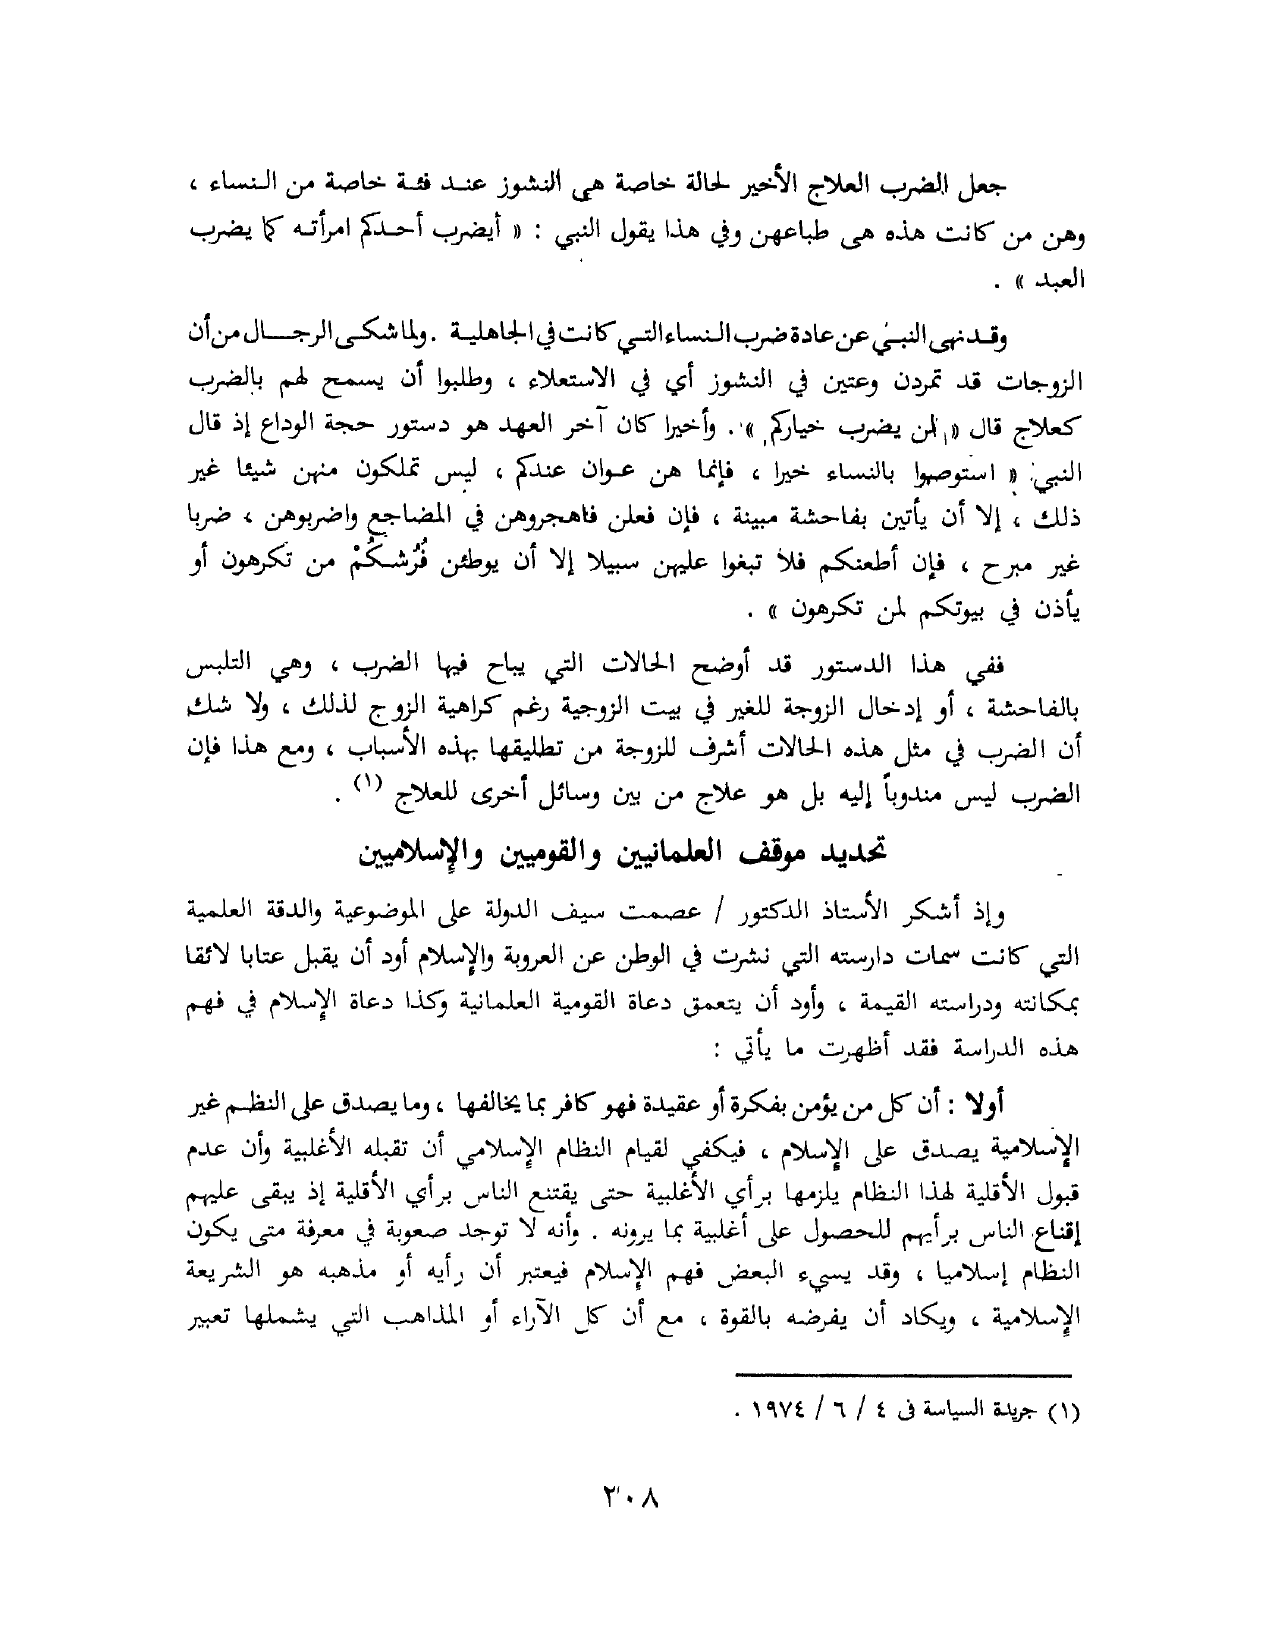 جعل الضرب العلاج الأخير لحالة خاصة هي النشوز عند فئة خاصة من النساء ،
وهن من كانت هذه هى طباعهن وفي هذا يقول النبي : « أيضرب أحدكم امرأته كما يضرب
العبد » .
وقد نهى النبي عن عادة ضرب النساء التي كانت في الجاهلية . ولما شكى الرجال من أن
الزوجات قد تمردن وعتين في النشوز أي في الاستعلاء ، وطلبوا أن يسمح لهم بالضرب
كعلاج قال « لن يضرب خياركم » . وأخيرا كان آخر العهد هو دستور حجة الوداع إذ قال
النبي : « استوصوا بالنساء خيرا ، فإنما هن عوان عندكم ، ليس تملكون منهن شيئا غير
ذلك ، إلا أن يأتين بفاحشة مبينة ، فإن فعلن فاهجروهن في المضاجع واضربوهن ، ضربا
غير مبرح ، فإن أطعنكم فلا تبغوا عليهن سبيلا إلا أن يوطئن فُرُشكُمْ من تكرهون أو
يأذن في بيوتكم لمن تكرهون » .
ففي هذا الدستور قد أوضح الحالات التي يباح فيها الضرب ، وهي التلبس
بالفاحشة ، أو إدخال الزوجة للغير في بيت الزوجية رغم كراهية الزوج لذلك ، ولا شك
أن الضرب في مثل هذه الحالات أشرف للزوجة من تطليقها بهذه الأسباب ، ومع هذا فإن
الضرب ليس مندوباً إليه بل هو علاج من بين وسائل أخرى للعلاج (١) .
تحديد موقف العلمانيين والقوميين والإسلاميين
وإذ أشكر الأستاذ الدكتور / عصمت سيف الدولة على الموضوعية والدقة العلمية
التي كانت سمات دارسته التي نشرت في الوطن عن العروبة والإسلام أود أن يقبل عتابا لائقا
بمكانته ودراسته القيمة ، وأود أن يتعمق دعاة القومية العلمانية وكذا دعاة الإسلام في فهم
هذه الدراسة فقد أظهرت ما يأتي :
أولا : أن كل من يؤمن بفكرة أو عقيدة فهو كافر بما يخالفها ، وما يصدق على النظم غير
الإسلامية يصدق على الإسلام ، فيكفي لقيام النظام الإسلامي أن تقبله الأغلبية وأن عدم
قبول الأقلية لهذا النظام يلزمها برأي الأغلبية حتى يقتنع الناس برأي الأقلية إذ يبقى عليهم
إقناع الناس برأيهم للحصول على أغلبية بما يرونه . وأنه لا توجد صعوبة في معرفة متى يكون
النظام إسلاميا ، وقد يسيء البعض فهم الإسلام فيعتبر أن رأيه أو مذهبه هو الشريعة
الإسلامية ، ويكاد أن يفرضه بالقوة ، مع أن كل الآراء أو المذاهب التي يشملها تعبير
(١) جريدة السياسة فى ٤ / ٦ / ١٩٧٤ .
٢٠٨